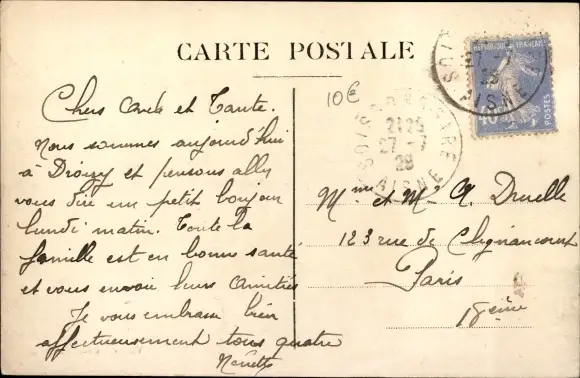 CARTE POSTALE
10€
REPUBLIQUE FRANÇAISE
40c
POSTES
SOISSONS GARE
21 25
27 - 7
28
AISNE
Chers Oncle et Tante.
Nous sommes aujourd'hui
à Droizy et pensons aller
vous dire un petit bonjour
lundi matin. Toute la
famille est en bonne santé
et vous envoie leurs amitiés
Je vous embrasse bien
affectueusement tous quatre
Mme et Mr A. Druelle
123 rue de Clignancourt
Paris
18ème